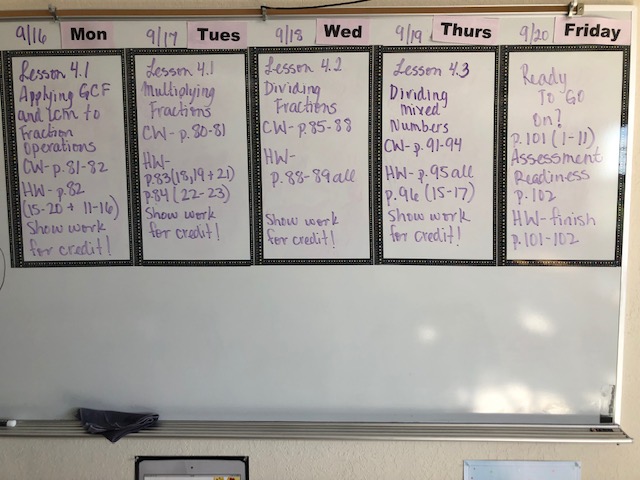 9/16 Mon
Lesson 4.1
Applying GCF
and LCM to
Fraction
Operations
CW- p.81-82
HW- p.82
(15-20 + 11-16)
Show work
for credit!
9/17 Tues
Lesson 4.1
Multiplying
Fractions
CW- p.80-81
HW-
p.83(18,19+21)
p.84(22-23)
Show work
for credit!
9/18 Wed
Lesson 4.2
Dividing
Fractions
CW- p.85-88
HW-
p.88-89 all
Show work
for credit!
9/19 Thurs
Lesson 4.3
Dividing
Mixed
Numbers
CW- p.91-94
HW- p.95 all
p.96 (15-17)
Show work
for credit!
9/20 Friday
Ready
To Go
On?
p.101 (1-11)
Assessment
Readiness
p.102
HW-finish
p.101-102